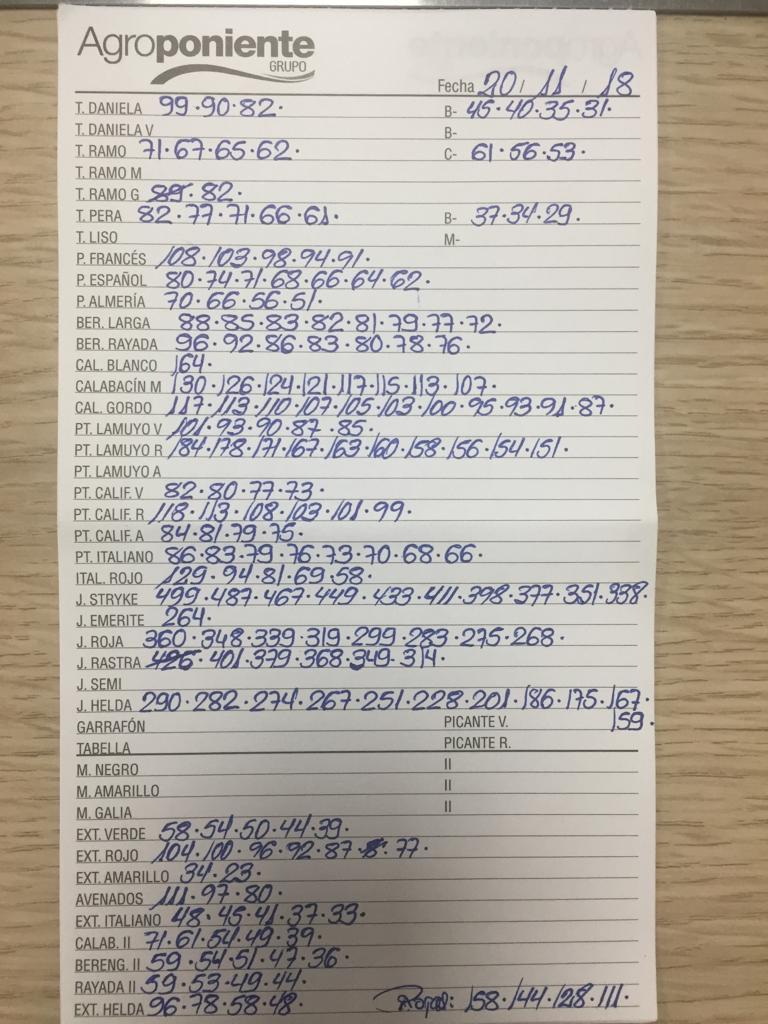 Agroponiente
GRUPO
Fecha 20 / 11 / 18
T. DANIELA 99·90·82· B- 45·40·35·31·
T. DANELA V B-
T. RAMO 71·67·65·62· C- 61·56·53·
T. RAMO M
T. RAMO G 82·
T. PERA 82·77·71·66·61· B- 37·34·29·
T. LISO M-
P. FRANCÉS 108·103·98·94·91·
P. ESPAÑOL 80·74·71·68·66·64·62·
P. ALMERÍA 70·66·56·51·
BER. LARGA 88·85·83·82·81·79·77·72·
BER. RAYADA 96·92·86·83·80·78·76·
CAL. BLANCO 164·
CALABACÍN M 130·126·124·121·117·115·113·107·
CAL. GORDO 117·113·110·107·105·103·100·95·93·91·87·
PT. LAMUYO V 101·93·90·87·85·
PT. LAMUYO R 184·178·171·167·163·160·158·156·154·151·
PT. LAMUYO A
PT. CALIF. V 82·80·77·73·
PT. CALIF. R 118·113·108·103·101·99·
PT. CALIF. A 84·81·79·75·
PT. ITALIANO 86·83·79·76·73·70·68·66·
ITAL. ROJO 129·94·81·69·58·
J. STRYKE 499·487·467·449·433·411·398·377·351·338·
J. EMERITE 264·
J. ROJA 360·348·339·319·299·283·275·268·
J. RASTRA 426·401·379·368·349·314·
J. SEMI
J. HELDA 290·282·274·267·251·228·201·186·175·167·
GARRAFÓN PICANTE V. 159·
TABELLA PICANTE R.
M. NEGRO II
M. AMARILLO II
M. GALIA II
EXT. VERDE 58·54·50·44·39·
EXT. ROJO 104·100·96·92·87·77·
EXT. AMARILLO 34·23·
AVENADOS 111·97·80·
EXT. ITALIANO 48·45·41·37·33·
CALAB. II 71·61·54·49·39·
BERENG. II 59·54·51·47·36·
RAYADA II 59·53·49·44·
EXT. HELDA 96·78·58·48· 158·144·128·111·